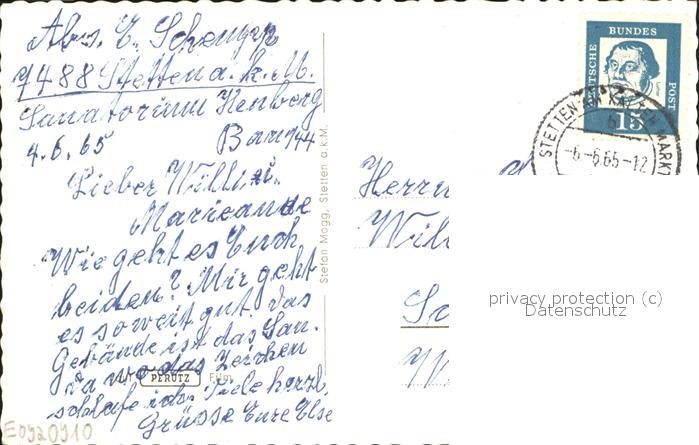 Abs. E. Schenzer
7488 Stetten a. k. M.
Sanatorium Heuberg
4.6.65 Bau 144
Lieber Willi u.
Marieanne
Wie geht es Euch
beiden? Mir geht
es soweit gut. Das
Gebäude ist das San.
da wo das Zeichen
schlafe ich. Viele herzl.
Grüsse Eure Else
PERUTZ Film
Stefan Mogg, Stetten a.k.M.
DEUTSCHE BUNDES POST
Luther
15
STETTEN AM KALTEN MARKT
-6.-6.65-12
Herrn
Will
privacy protection (c)
Datenschutz
E0920910